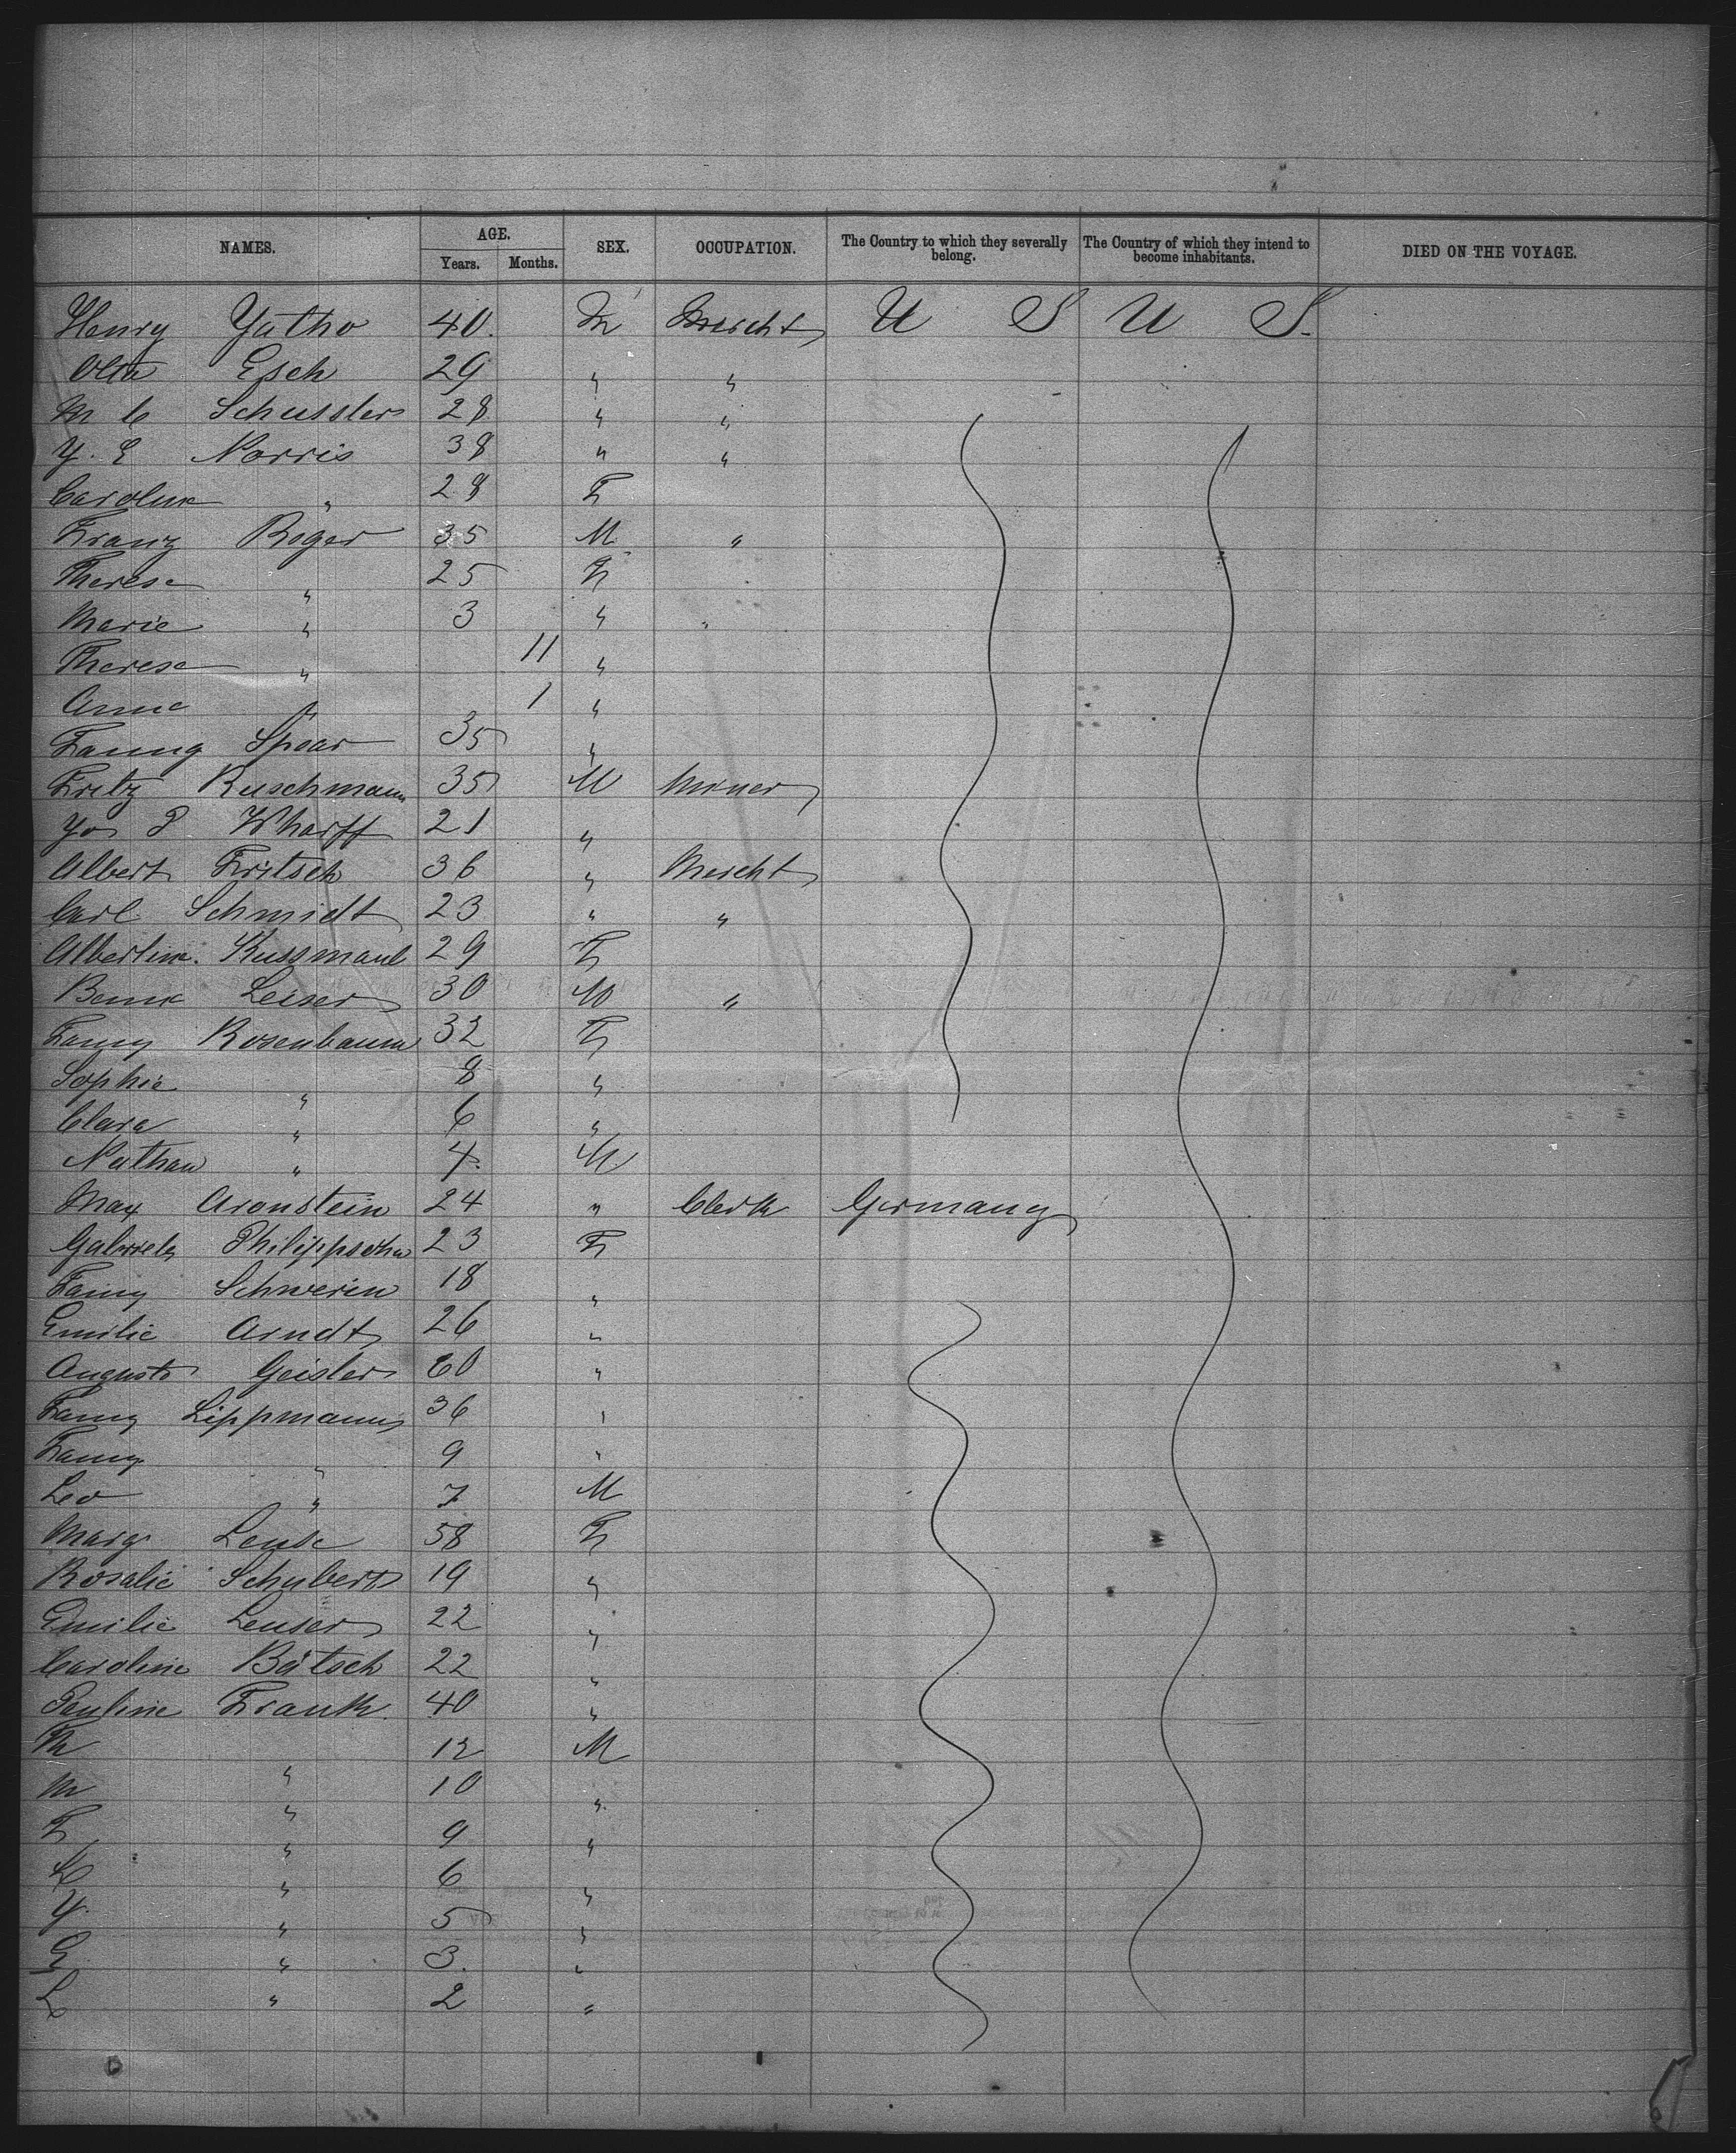 NAMES. AGE. SEX. OCCUPATION. The Country to which they severally belong. The Country of which they intend to become inhabitants. DIED ON THE VOYAGE.
Years. Months.
Henry Yatho 40. M Mercht U S U S.
Otto Esch 29 " "
M C Schussler 28 " "
Y. E Norris 38 " "
Caroline " 28 F
Franz Roger 35 M "
Therese " 25 F
Marie " 3 " "
Therese " 11 "
Anna " 1 "
Fanny Spear 35 "
Fritz Ruschmann 35 M
Jos P Wharff 21 "
Albert Fritsch 36 " Mercht
Carl Schmidt 23 " "
Albertine Kussmaul 29 F
Leiser 30 M "
Fanny Rosenbaum 32 F
Sophie " 8 "
Clara " 6 "
Nathan " 4. M
Max Aronstein 24 " Clerk Germany
Gabriele Philippsohn 23 F
Fanny Schwerin 18 "
Emilie Arndt 26 "
Auguste Geisler 60 "
Fanny Lippmann 36 "
Fanny " 9 "
Leo " 7 M
Marg 58 F
Rosalie Schubert 19 "
Emilie Leuser 22 "
Caroline Bätsch 22 "
Pauline Frank 40 "
" 12 M
M " 10 "
F " 9 "
" 6 "
Y. " 5 "
E " 3. "
L " 2 "